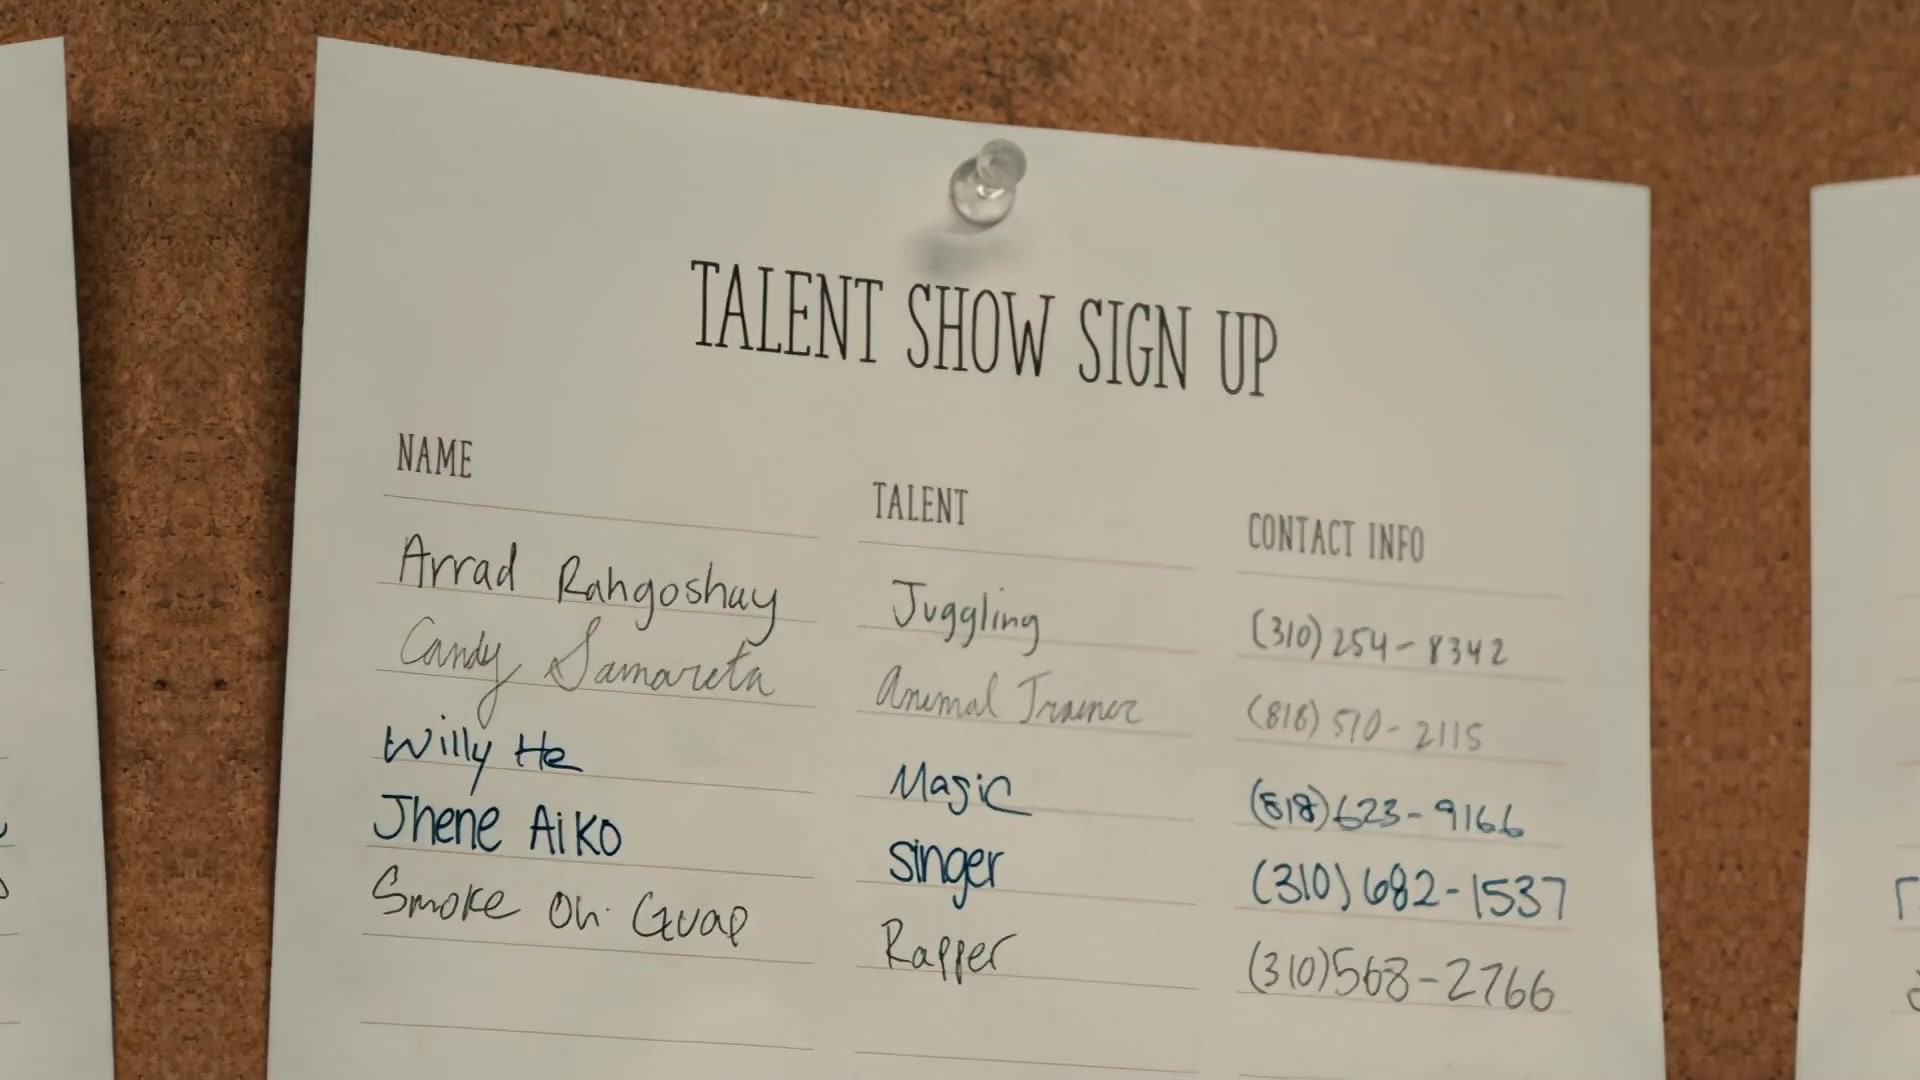 TALENT SHOW SIGN UP
NAME TALENT CONTACT INFO
Arrad Rangoshay Juggling (310) 254-8342
Candy Samareta Animal Trainer (818) 510-2115
Willy He Magic (818) 623-9166
Jhene Aiko Singer (310) 682-1537
Smoke Oh Guap Rapper (310) 568-2766